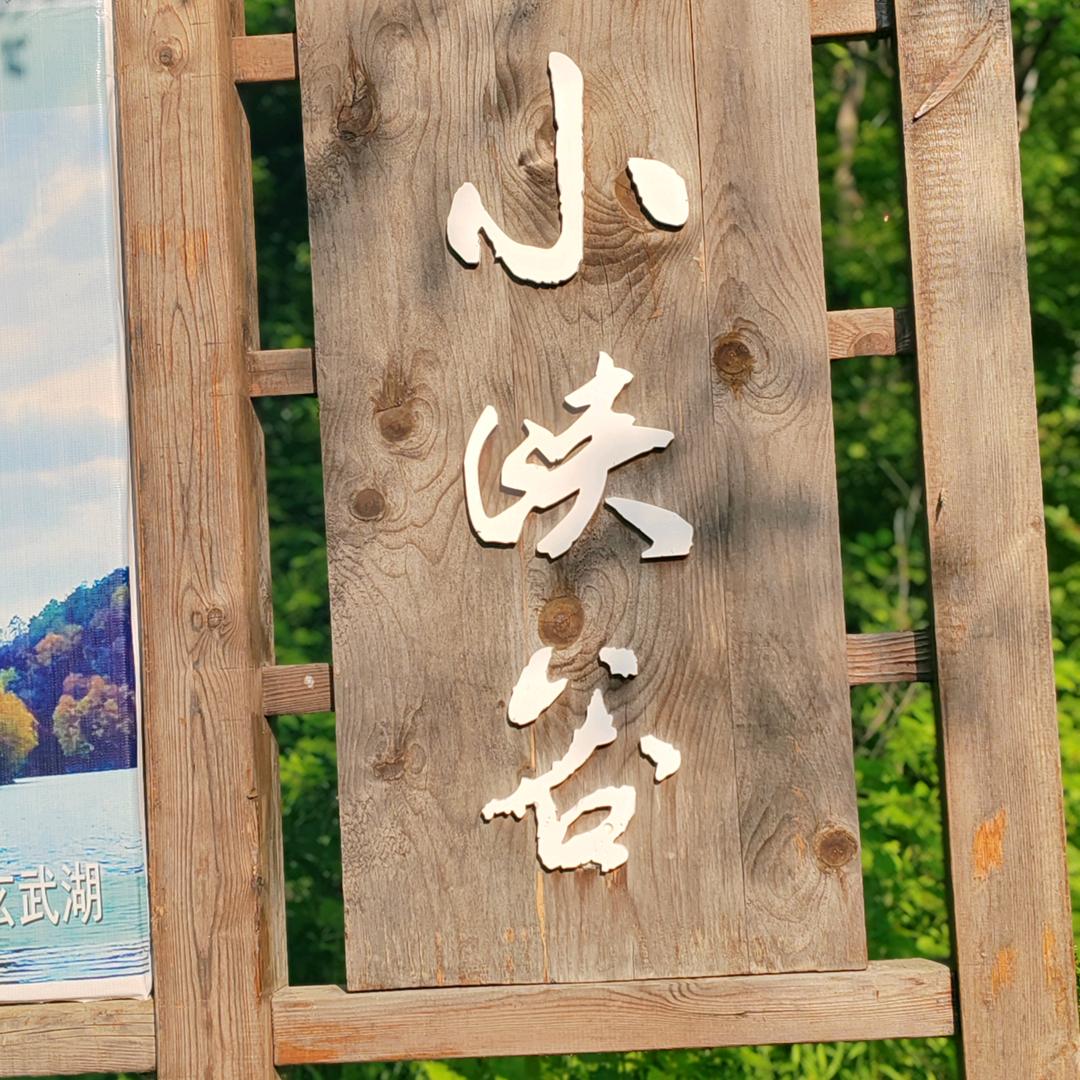 小峡谷
玄武湖